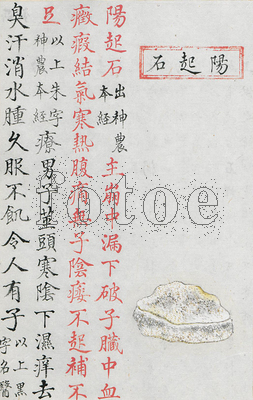 陽起石
陽起石出神農本經主崩中漏下破子臟中血
癥瘕結氣寒熱腹痛無子陰痿不起補不
足以上朱字神農本經療男子莖頭寒陰下濕痒去
臭汗消水腫久服不飢令人有子以上黑字名醫
fotoe